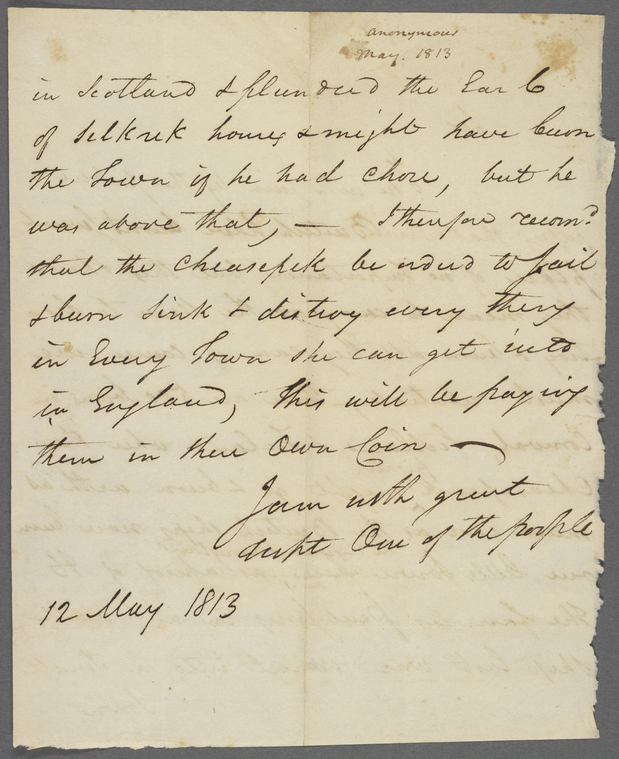 anonymous
May. 1813
in Scotland & plundred the Earl
of Selkrek house & might have burn
the Town if he had chose, but he
was above that, — I therfore recomd
that the Cheasepek be ordred to Sail
& burn Sink & distroy every thing
in Every Town she can get into
in England, this will be paying
them in there Own Coin —
I am with great
respt One of the people
12 May 1813